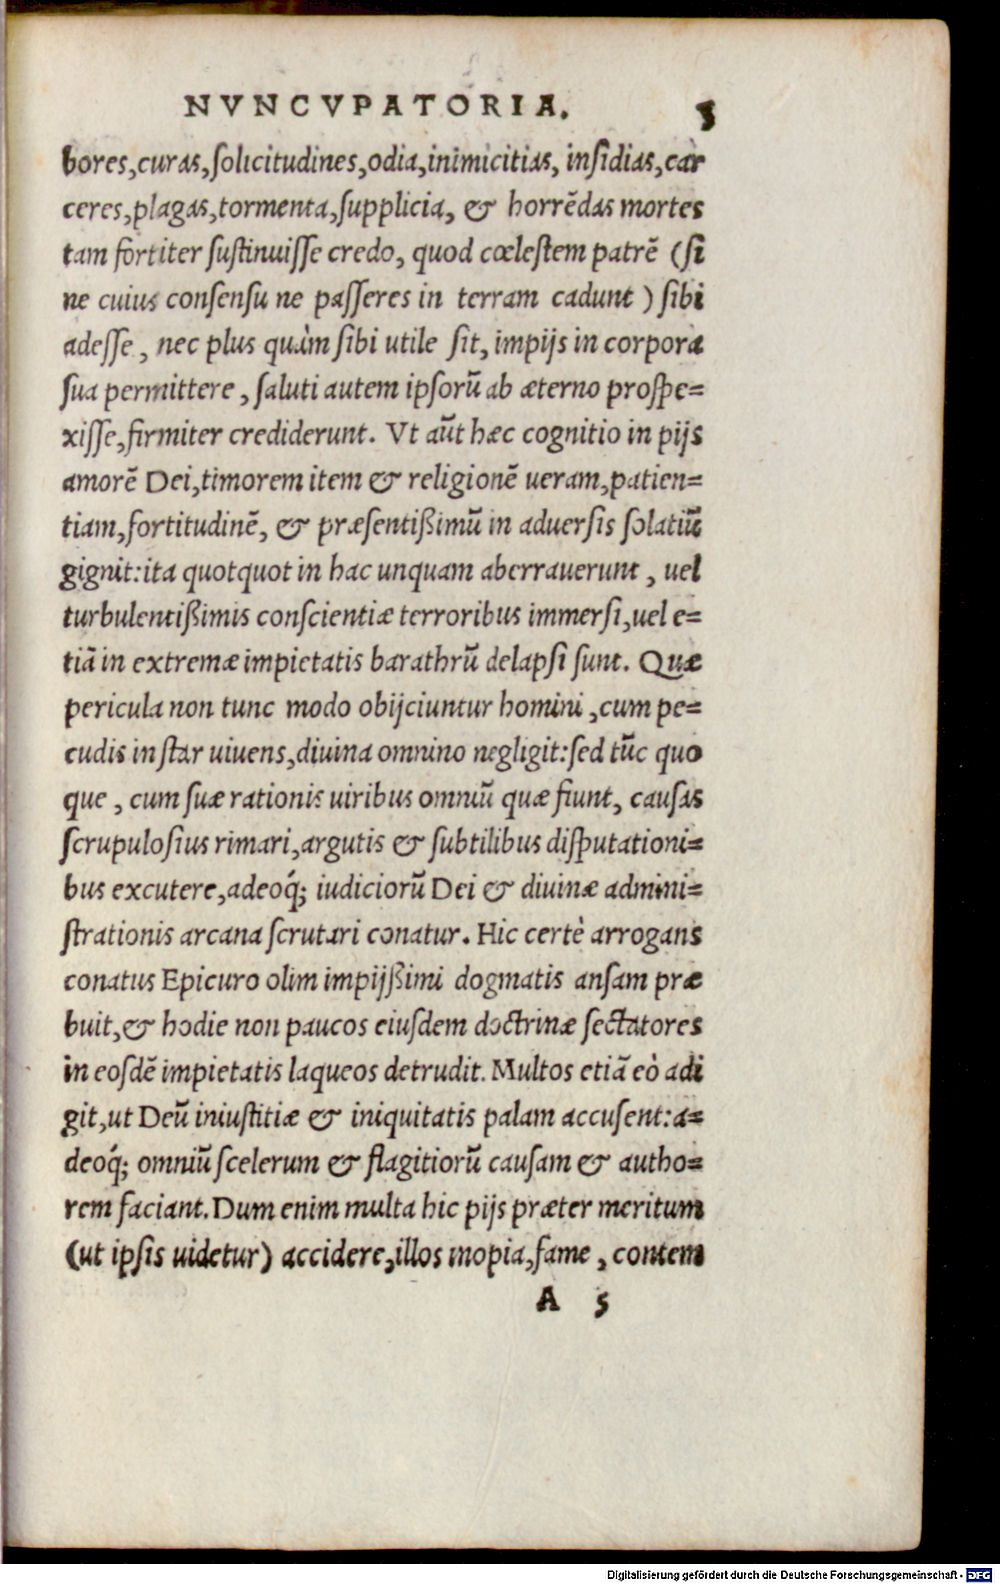 NVNCVPATORIA. 5
bores,curas,ſolicitudines,odia,inimicitias, inſidias,car
ceres,plagas,tormenta,ſupplicia, & horrẽdas mortes
tam fortiter ſuſtinuiſſe credo, quod cœleſtem patrẽ (ſi
ne cuius conſenſu ne paſſeres in terram cadunt) ſibi
adeſſe, nec plus quàm ſibi utile ſit, impijs in corpora
ſua permittere, ſaluti autem ipſorũ ab æterno proſpe=
xiſſe,firmiter crediderunt. Vt aũt hæc cognitio in pijs
amorẽ Dei,timorem item & religionẽ ueram,patien=
tiam,fortitudinẽ, & præſentißimũ in aduerſis ſolatiũ
gignit:ita quotquot in hac unquam aberrauerunt, uel
turbulentißimis conſcientiæ terroribus immerſi,uel e=
tiã in extremæ impietatis barathrũ delapſi ſunt. Quæ
pericula non tunc modo obijciuntur homini,cum pe=
cudis inſtar uiuens,diuina omnino negligit:ſed tũc quo
que, cum ſuæ rationis uiribus omniũ quæ fiunt, cauſas
ſcrupuloſius rimari,argutis & ſubtilibus diſputationi=
bus excutere,adeoq́; iudiciorũ Dei & diuinæ admini=
ſtrationis arcana ſcrutari conatur. Hic certè arrogans
conatus Epicuro olim impijßimi dogmatis anſam præ
buit,& hodie non paucos eiuſdem doctrinæ ſectatores
in eoſdẽ impietatis laqueos detrudit. Multos etiã eò adi
git,ut Deũ iniuſtitiæ & iniquitatis palam accuſent:a=
deoq́; omniũ ſcelerum & flagitiorũ cauſam & autho=
rem faciant. Dum enim multa hic pijs præter meritum
(ut ipſis uidetur) accidere,illos inopia,fame, contem
A 5
Digitalisierung gefördert durch die Deutsche Forschungsgemeinschaft - DFG